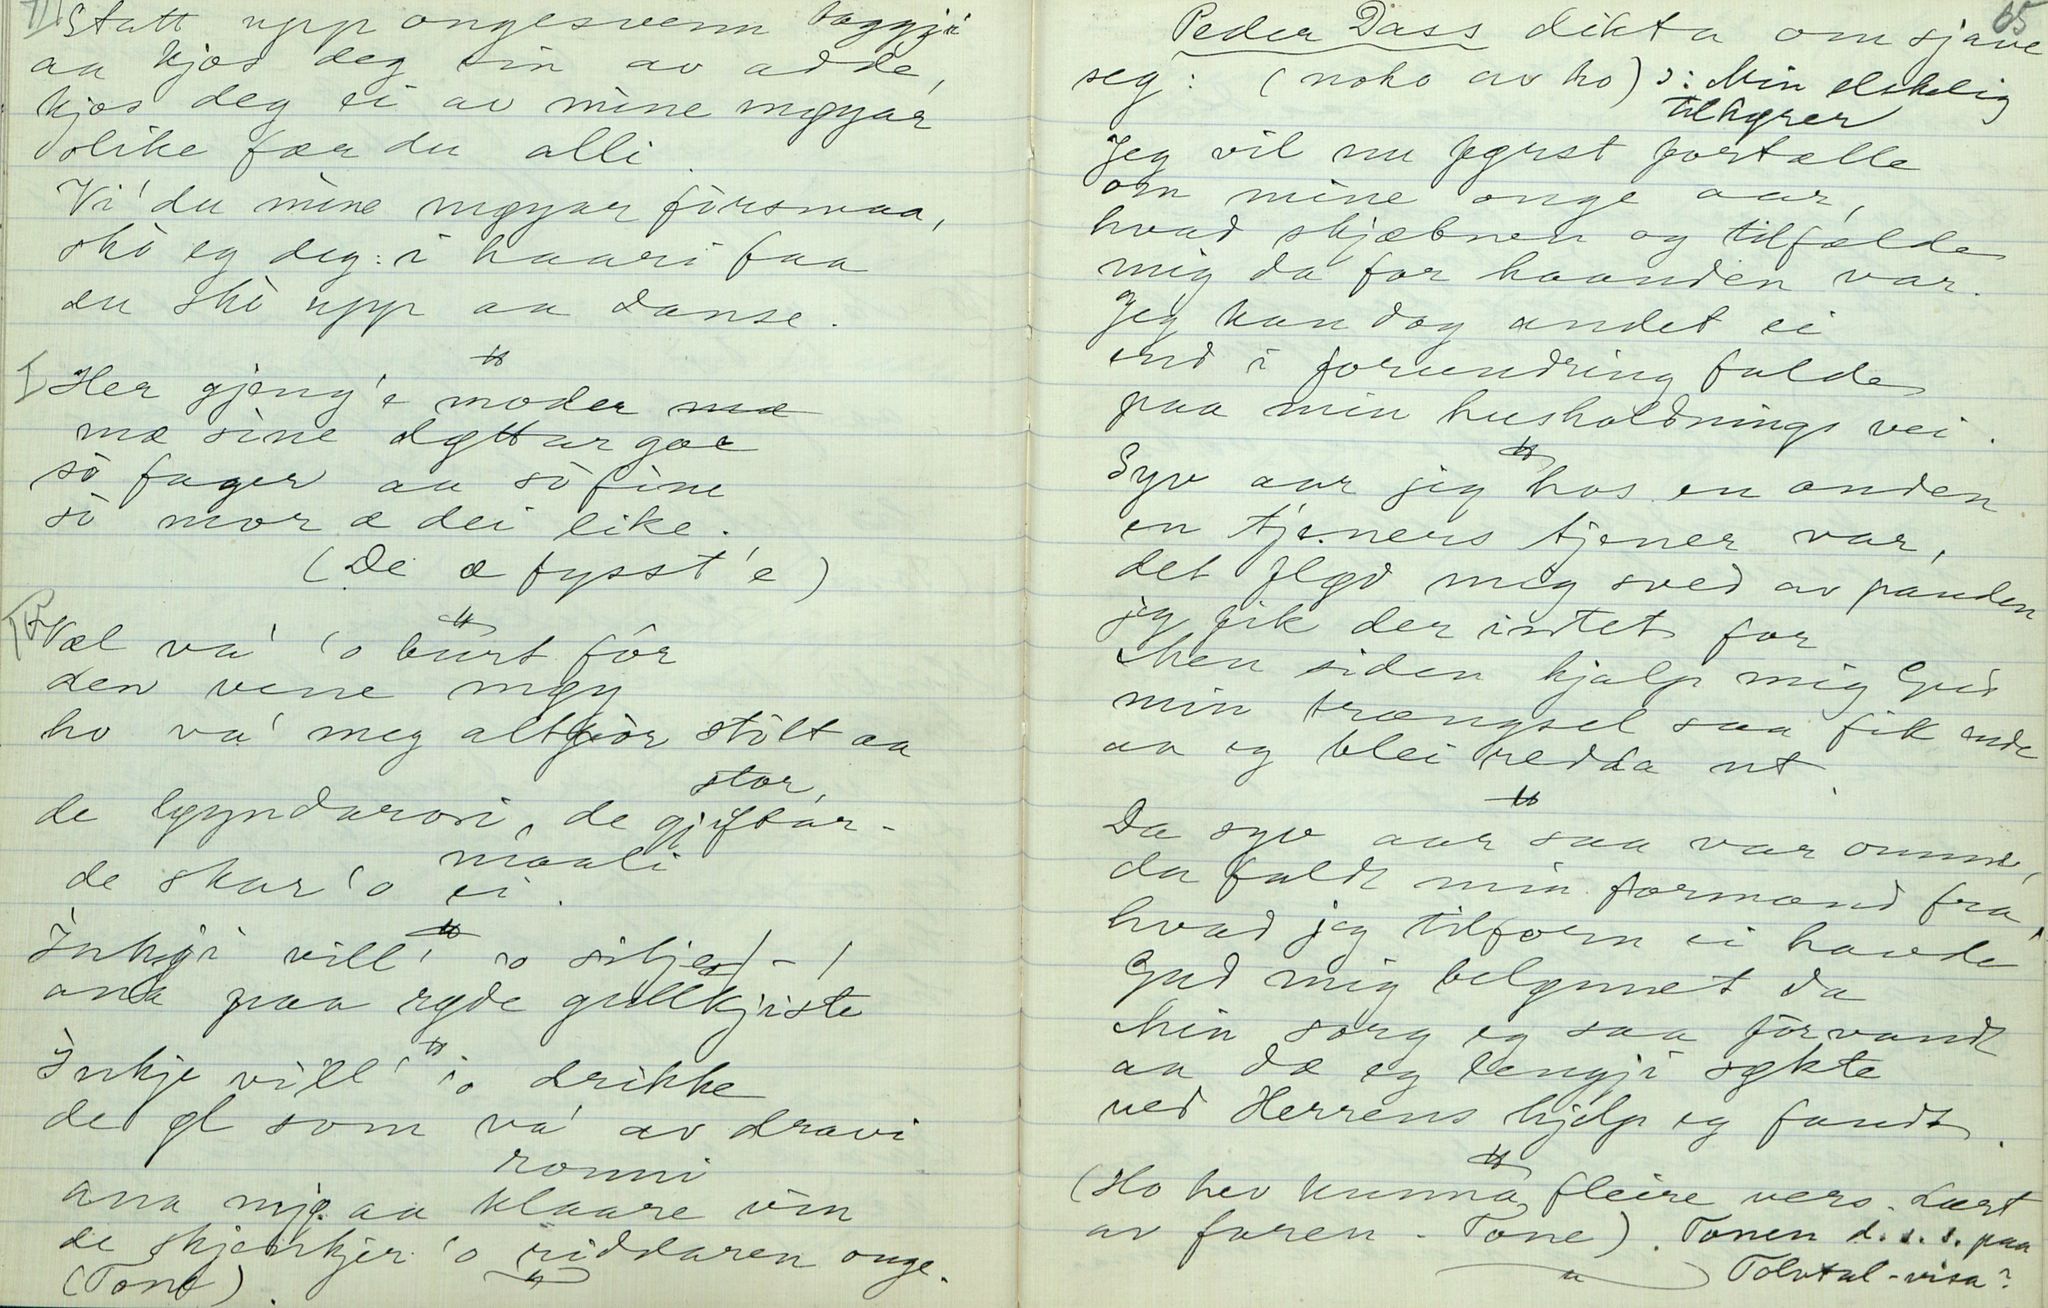 II Statt upp ongesvenn
aa kjos deg ein av adde,
kjos deg ei av mine møyar
slike fær du alli
Vi' du mine møyar försmaa,
skò eg deg i haari faa
du skò upp aa danse.
I Her gjeng'e moder
mæ sine døttar goe
sò fager aa sò fine
sò mor æ dei like.
(De æ fysst'e)
Væl va' 'o burt för
den vene møy
ho va' meg altfòr stòlt aa
stor,
de løyndarosi, de gjiftar-
maali
de skar 'o ei.
Inkji vill' 'o silje
ana paa røde gullkjiste
Inkje vill' 'o drikke
de øl som va' av dravi
ronni
ana mjø aa klaare vin
de skjenkjer 'o riddaren onge.
(Tone).
65
Peder Dass dikta om sjave
seg: (noko av ho) ɔ: Min elskelig
tilhører
Jeg vil nu først fortælle
om mine onge aar,
hvad skjæbnen og tilfælde
mig da for haanden var.
Jeg kan dog andet ei
end i forundring falde
paa min husholdnings vei.
Syv aar jeg hos en anden
en tjeners tjener var,
det flød mig sved av panden
jeg fik der intet for
Men siden hjalp mig Gud
min trængsel saa fik ende
aa eg blei redda ut.
Da syv aar saa var omme,
da faldt min formand fra,
hvad jeg tilforn ei havde
Gud mig belønnet da
Min sorg eg saa förvandt
aa dæ eg lengji søkte
ved Herrens hjelp eg fandt.
(Ho hev kunna fleire vers. Lært
av faren. Tone). Tonen d. s. s. paa
Tolvtal-visa?